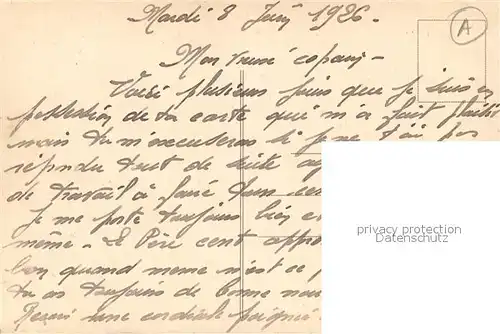 Mardi 8 Juin 1926.
A
Mon vieux copain -
Voici plusieurs jours que je suis en
possession de ta carte qui m'a fait plaisir
mais tu m'excuseras si je ne t'ai pas
répondu tout de suite
de travail à faire dans
je me porte toujours bien
même. Le Père cent
bon quand meme n'est ce
tu as toujours de bonne
Reçois une cordiale poignée
privacy protection
Datenschutz